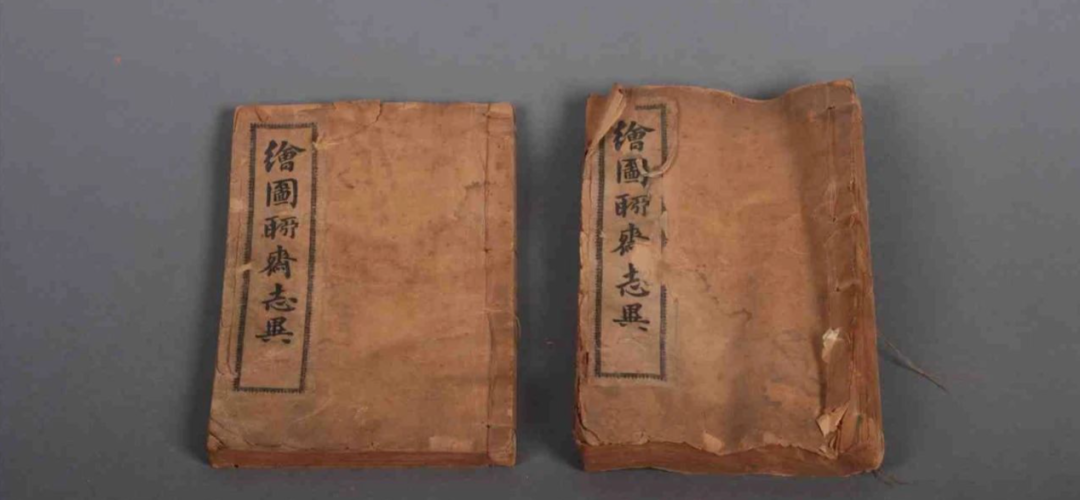 繪圖聊齋志異
繪圖聊齋志異